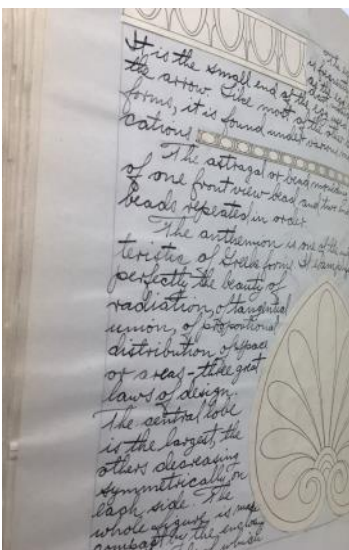 with
It is the small end of the egg
the arrow. Like most of the
forms, it is found under various
cations.
The astragal or bead moulding
of one front view bead and two
beads repeated in order.
The anthemion is one of the
teristic of Greek forms. It
perfectly the beauty of
radiation, of tangential
union, of proportional
distribution of space
or areas - three great
laws of design.
The central lobe
is the largest, the
others decreasing
symmetrically on
each side. The
whole figure is made
compact by the
which